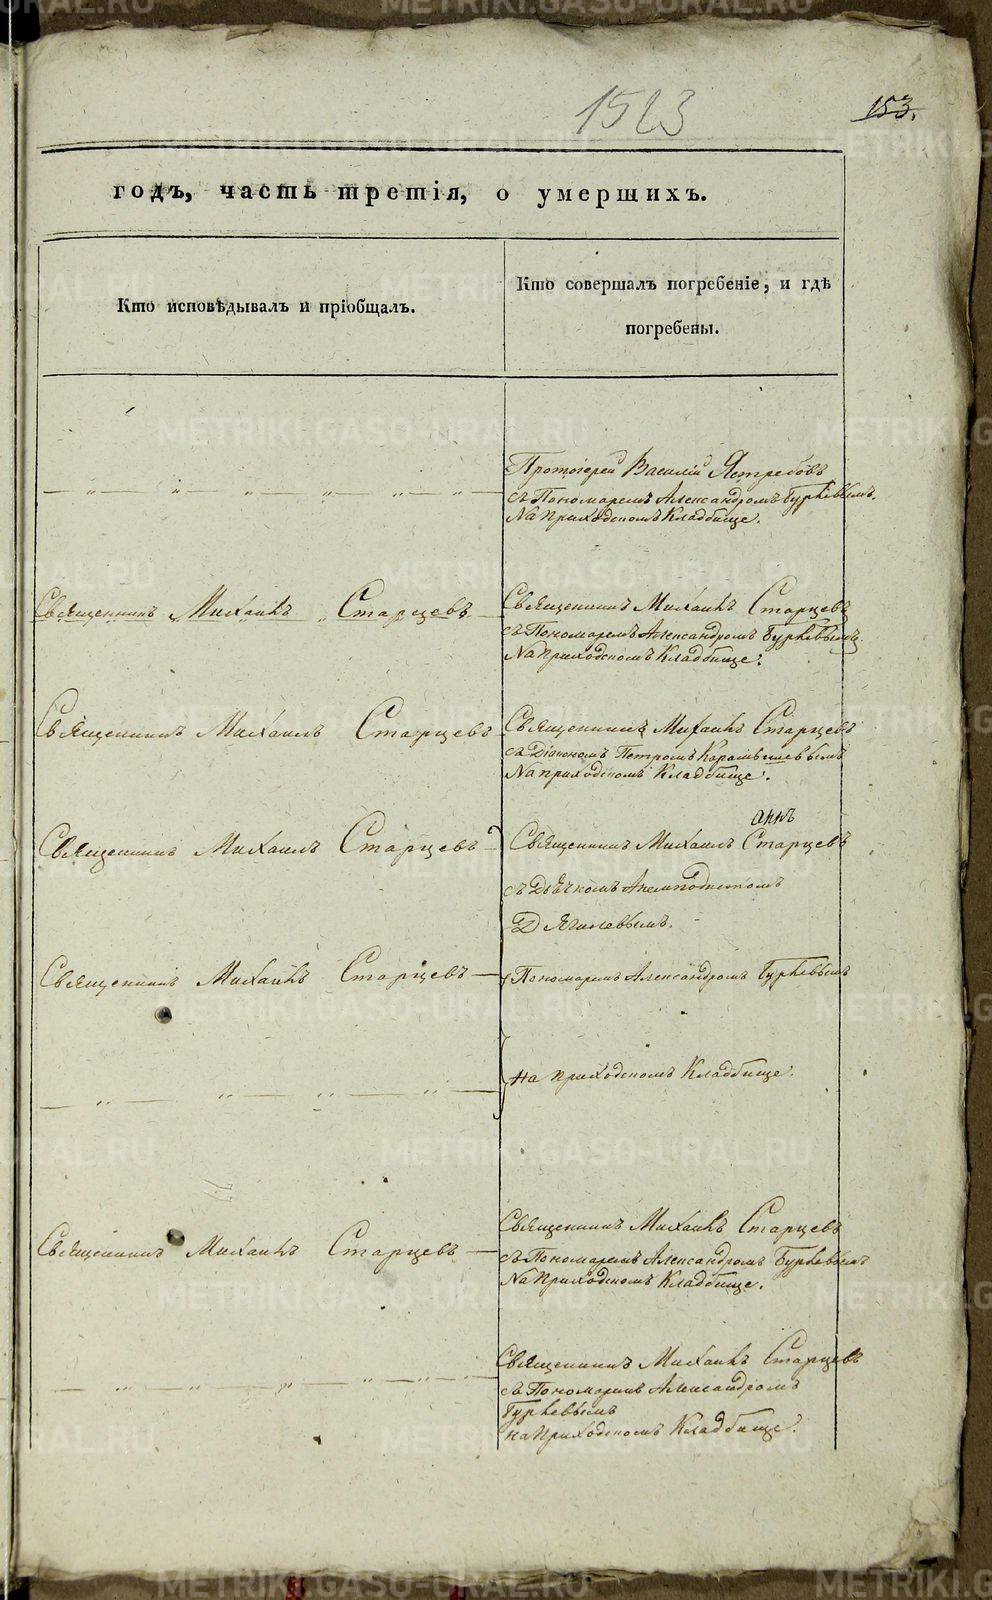 1523
153.
годъ, часть третія, о умершихъ.
Кто исповѣдывалъ и пріобщалъ.
Кто совершалъ погребеніе, и гдѣ
погребены.
Протоіерей Василій Ястребовъ
съ Пономаремъ Александромъ
На приходскомъ Кладбище.
Священникъ Михаилъ Старцевъ
Священникъ Михаилъ Старцевъ
съ Пономаремъ Александромъ
На приходскомъ Кладбище.
Священникъ Михаилъ Старцевъ
Священникъ Михаилъ Старцевъ
съ Діакономъ Петромъ
На приходскомъ Кладбище.
Священникъ Михаилъ Старцевъ
Священникъ Михаилъ Старцевъ
съ Дьячкомъ
Дягилевымъ.
Священникъ Михаилъ Старцевъ
Пономаремъ Александромъ
на приходскомъ Кладбище.
Священникъ Михаилъ Старцевъ
Священникъ Михаилъ Старцевъ
съ Пономаремъ Александромъ
На приходскомъ Кладбище.
Священникъ Михаилъ Старцевъ
съ Пономаремъ Александромъ
на приходскомъ Кладбище.
METRIKI.GASO-URAL.RU